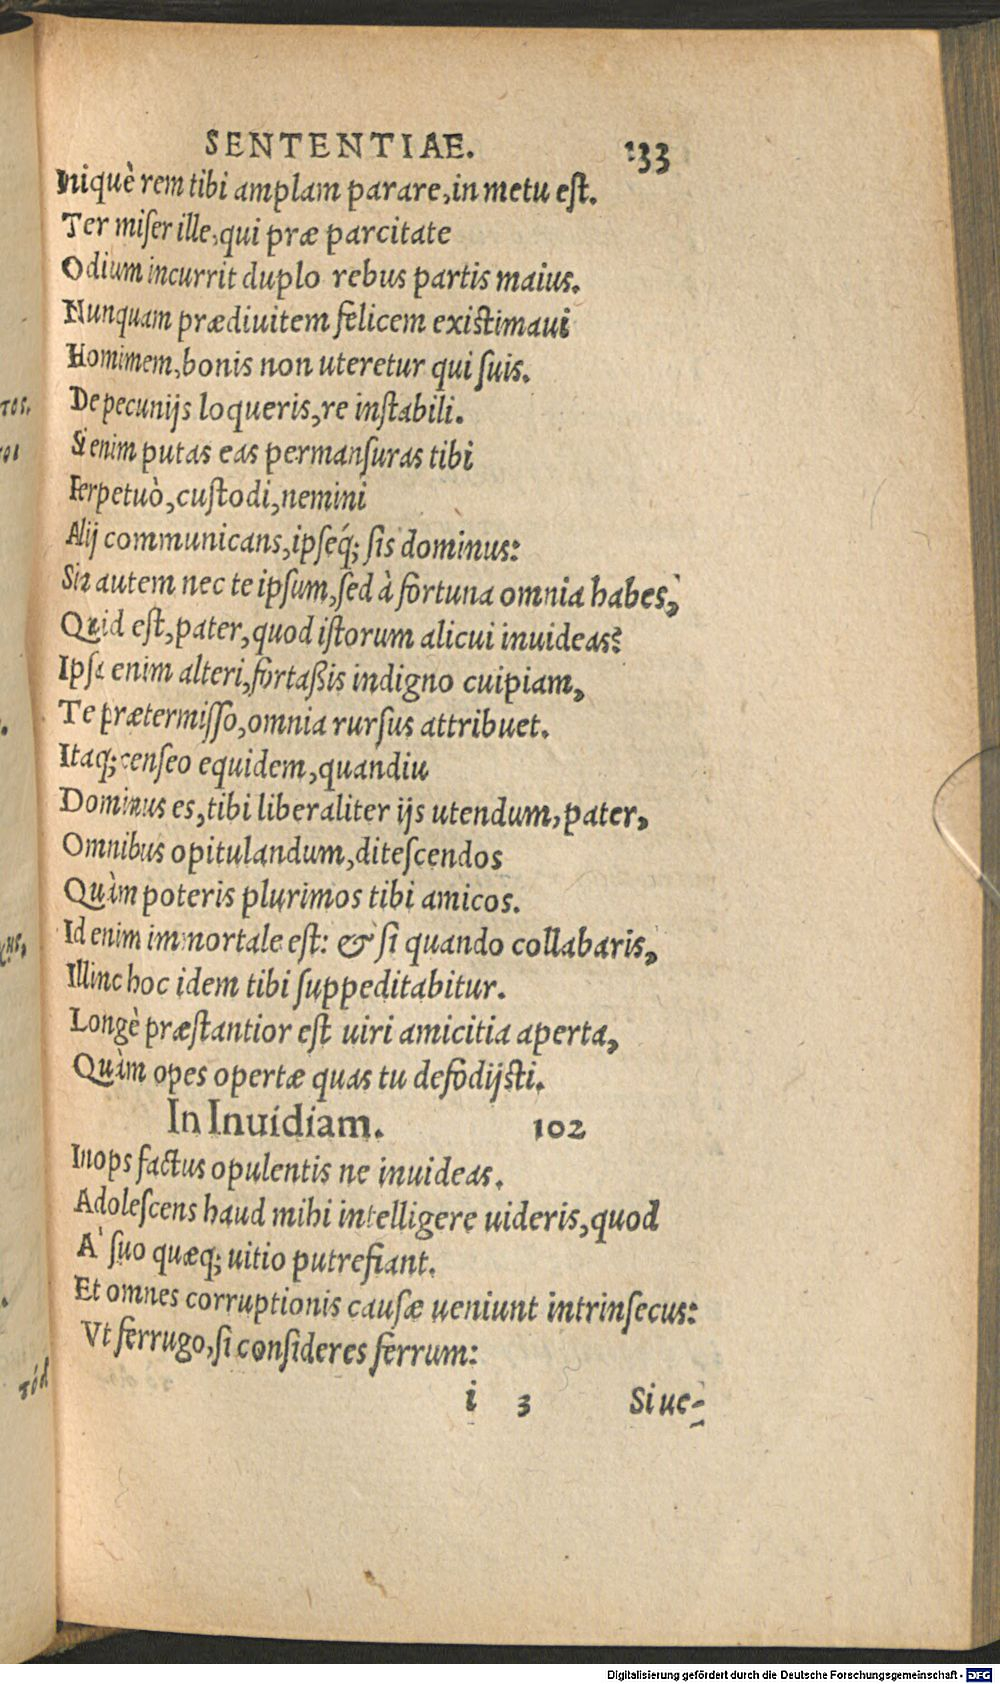 SENTENTIAE. 133
Iniquè rem tibi amplam parare, in metu est.
Ter miser ille, qui præ parcitate
Odium incurrit duplo rebus partis maius.
Nunquam prædiuitem felicem existimaui
Hominem, bonis non uteretur qui suis.
De pecunijs loqueris, re instabili.
Si enim putas eas permansuras tibi
Perpetuò, custodi, nemini
Alij communicans, ipseq́; sis dominus:
Sin autem nec te ipsum, sed à fortuna omnia habes,
Quid est, pater, quod istorum alicui inuideas?
Ipsa enim alteri, fortaßis indigno cuipiam,
Te prætermisso, omnia rursus attribuet.
Itaq; censeo equidem, quandiu
Dominus es, tibi liberaliter ijs utendum, pater,
Omnibus opitulandum, ditescendos
Quàm poteris plurimos tibi amicos.
Id enim immortale est: & si quando collabaris,
Illinc hoc idem tibi suppeditabitur.
Longè præstantior est uiri amicitia aperta,
Quàm opes opertæ quas tu defodijsti.
In Inuidiam. 102
Inops factus opulentis ne inuideas.
Adolescens haud mihi intelligere uideris, quod
A' suo quæq; uitio putrefiant.
Et omnes corruptionis causæ ueniunt intrinsecus:
Vt ferrugo, si consideres ferrum:
i 3 Si ue-
τος.
τοι
τόδ
Digitalisierung gefördert durch die Deutsche Forschungsgemeinschaft - DFG